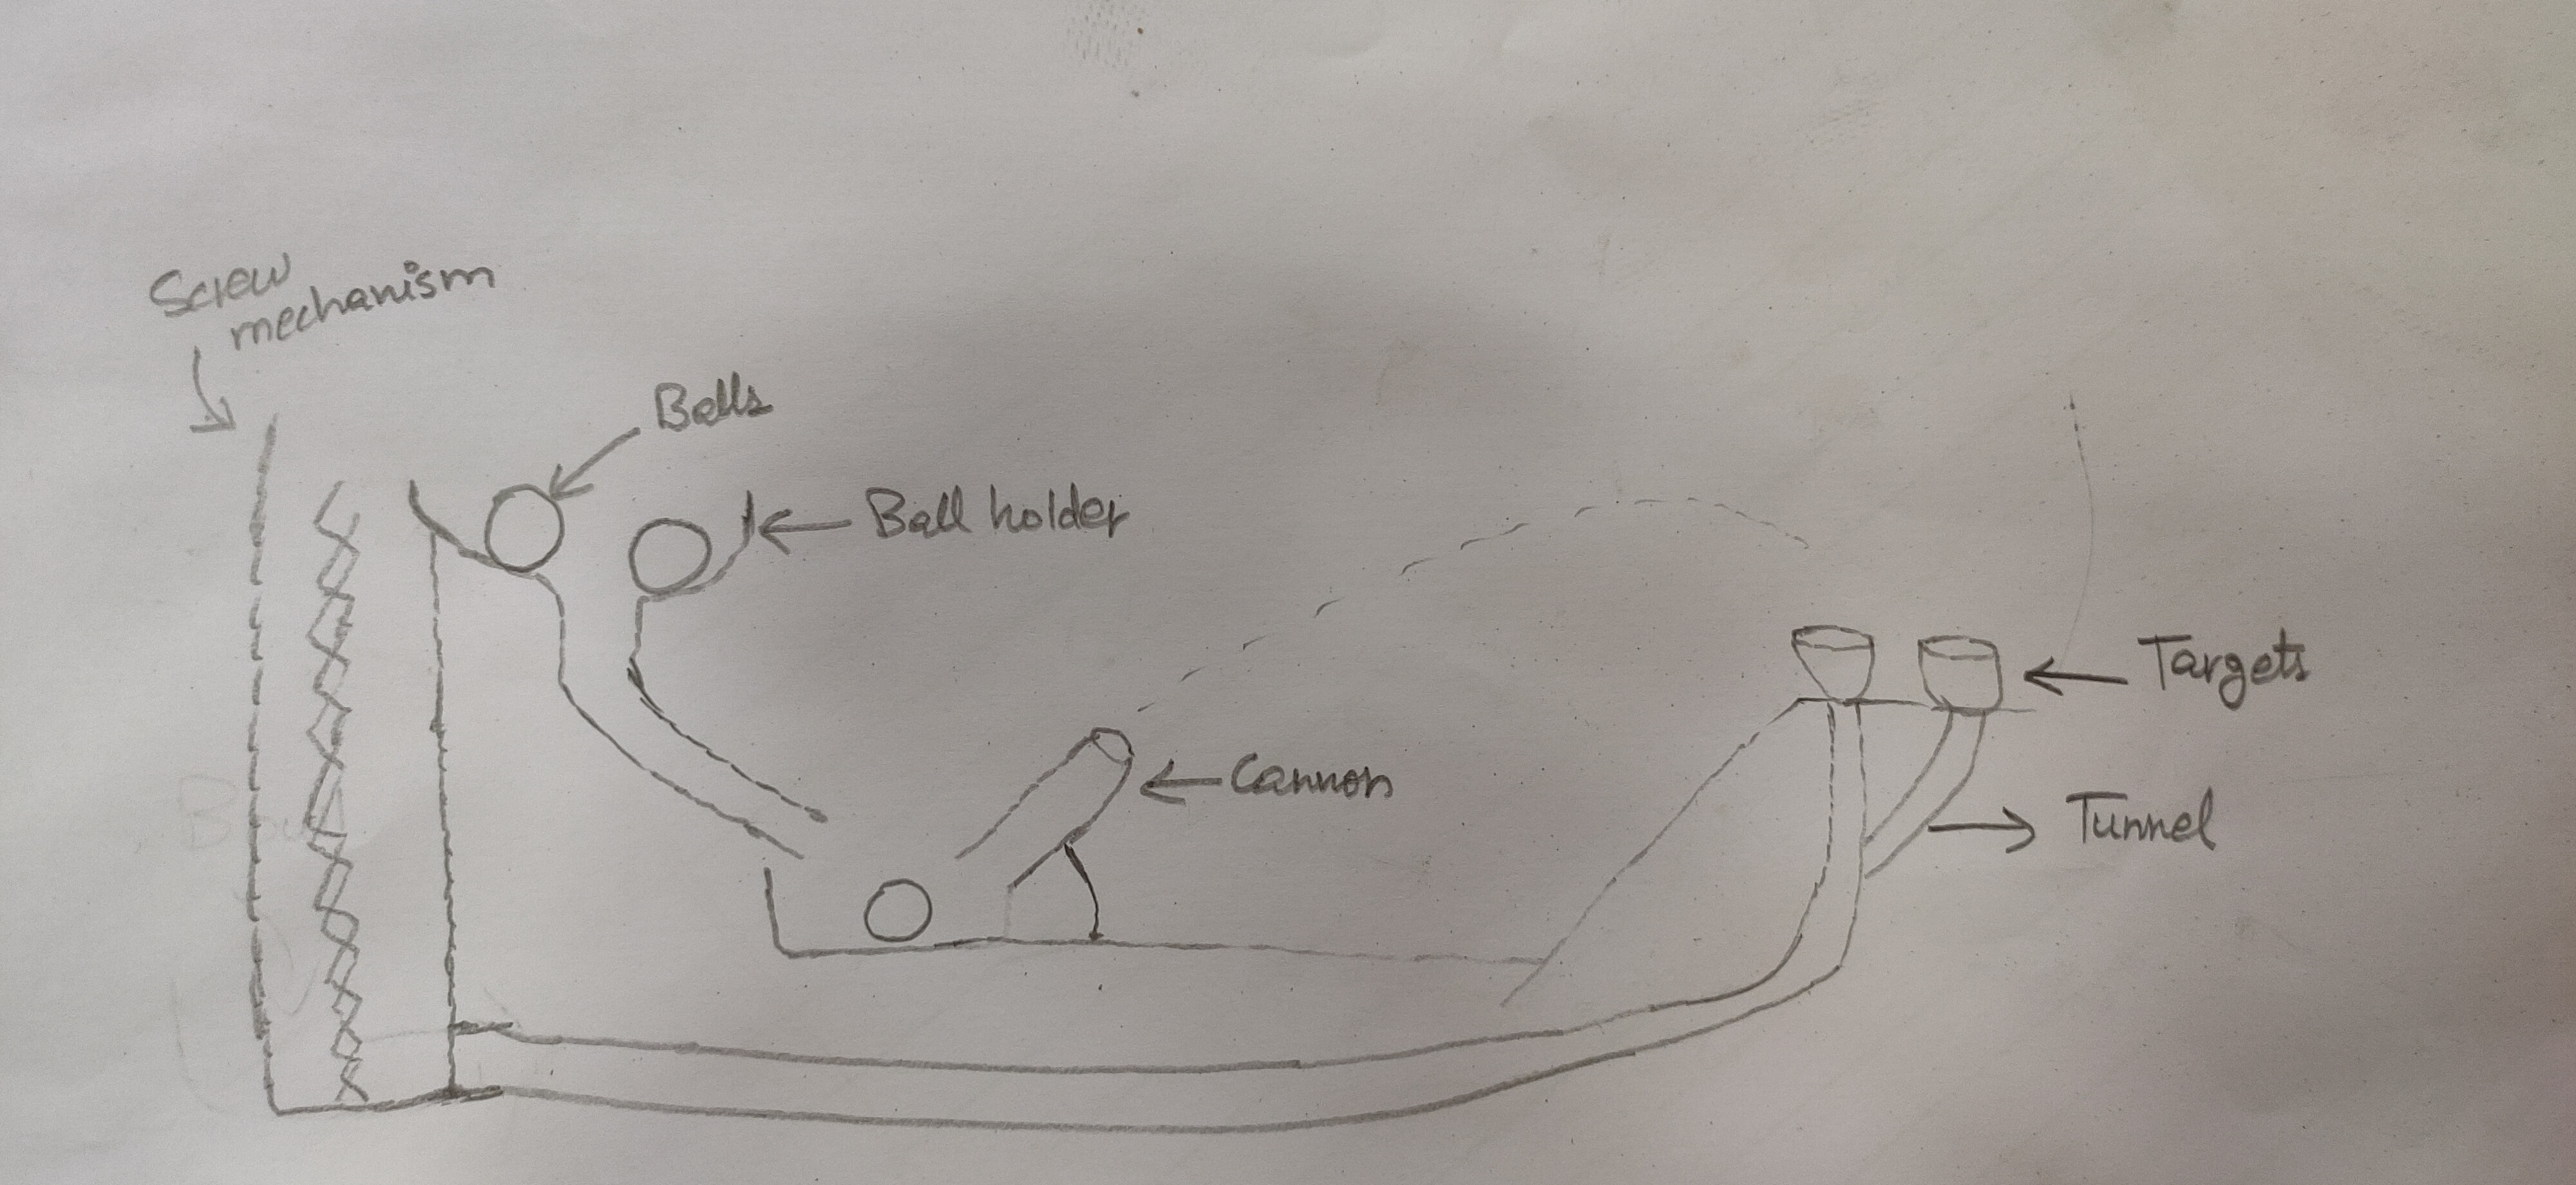 Screw
mechanism
Balls
Ball holder
Cannon
Targets
Tunnel